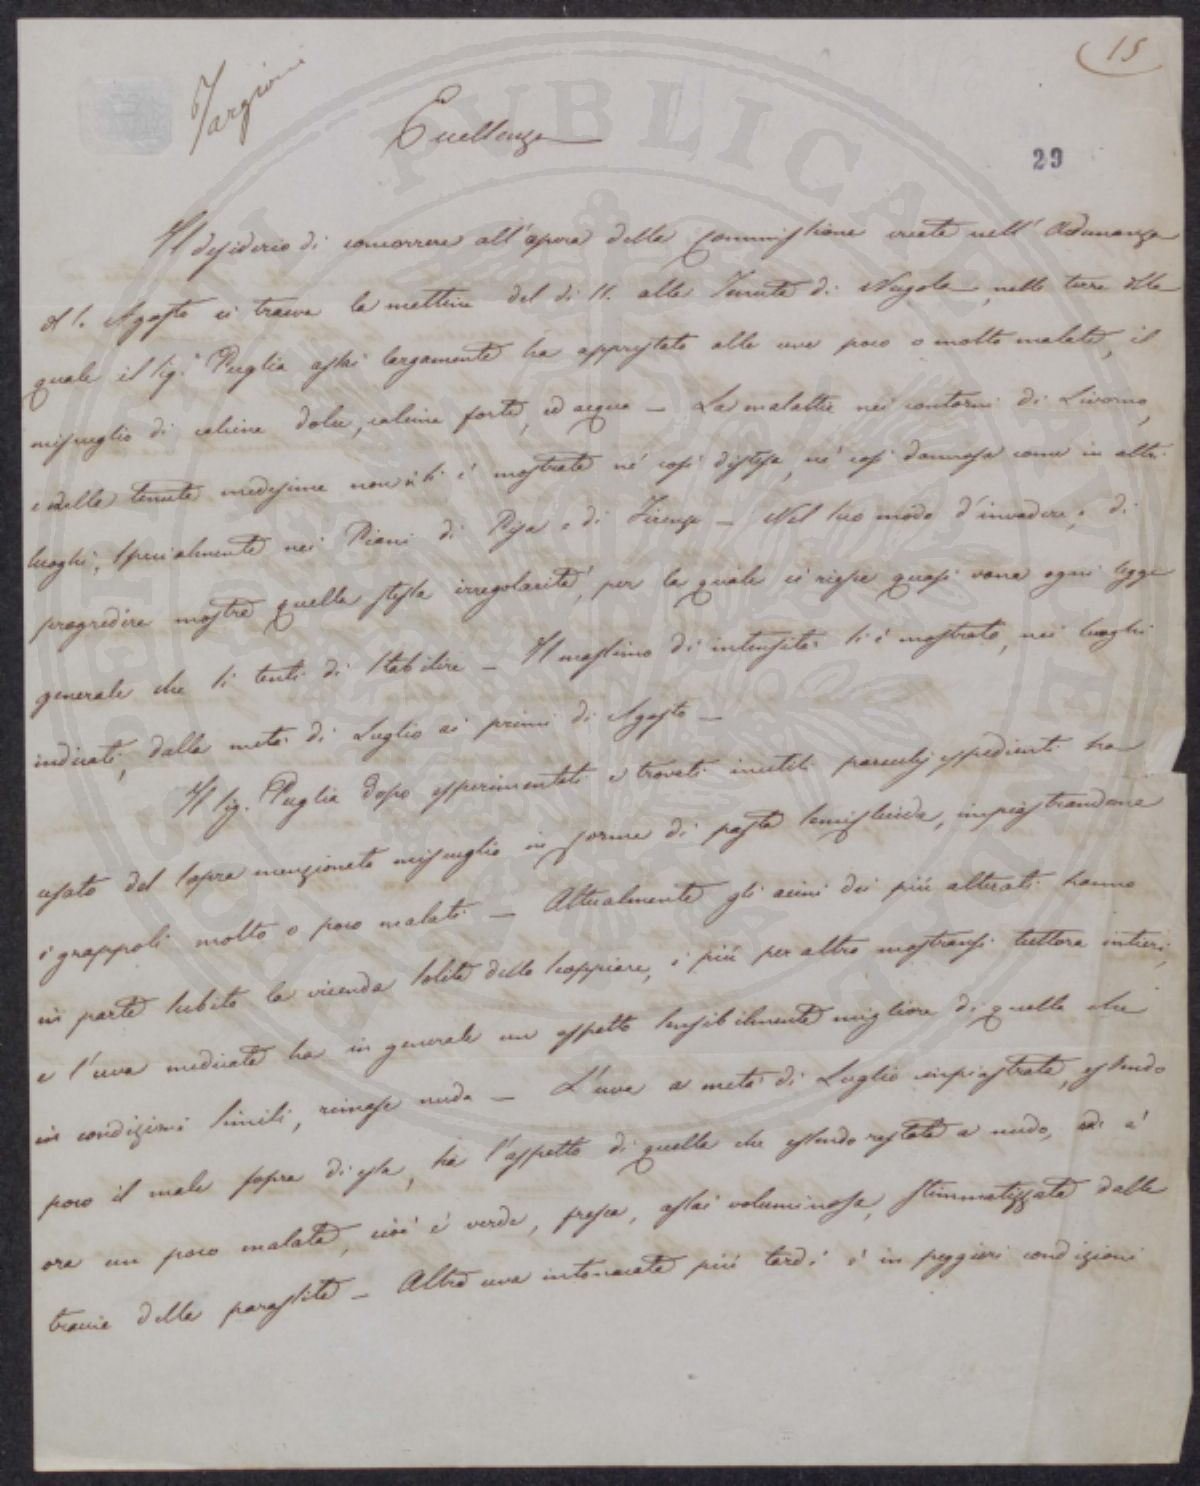 15
Targioni
Eccellenza
29
Il desiderio di concorrere all'opera della Commissione creata nell'Adunanza
d 1. Agosto ci traeva la mattina del di 11. alla Tenuta di Nugola, nelle terre della
quale il Sig.r Puglia assai largamente ha apprestato alle uve poco o molto malate, il
miscuglio di calcina dolce, calcina forte, ed acqua — La malattia nei contorni di Livorno,
e nella tenuta medesima non si è mostrata nè così distesa, nè così dannosa come in altri
luoghi, specialmente nei Piani di Pisa e di Firenze — Nel suo modo d'invadere e di
progredire mostra quella stessa irregolarità, per la quale ci riesce quasi vana ogni legge
generale che si tenti di stabilire — Il massimo di intensità si è mostrato, nei luoghi
indicati, dalla metà di Luglio ai primi di Agosto —
Il Sig. Puglia dopo esperimentati e trovati inutili parecchj espedienti ha
usato del sopra menzionato miscuglio in forma di pasta semifluida, impiastrandone
i grappoli molto o poco malati — Attualmente gli acini dei più alterati hanno
in parte subito la vicenda solita dello scoppiare, i più per altro mostransi tuttora intieri,
e l'uva medicata ha in generale un aspetto sensibilmente migliore di quella che
in condizioni simili, rimase nuda — L'uva a metà di Luglio impiastrata, essendo
poco il male sopra di essa, ha l'aspetto di quella che essendo restata a nudo, è
ora un poco malata, cioè è verde, fresca, assai voluminosa, stimmatizzata dalle
traccie della parassita — Altra uva intonacata più tardi è in peggiori condizioni